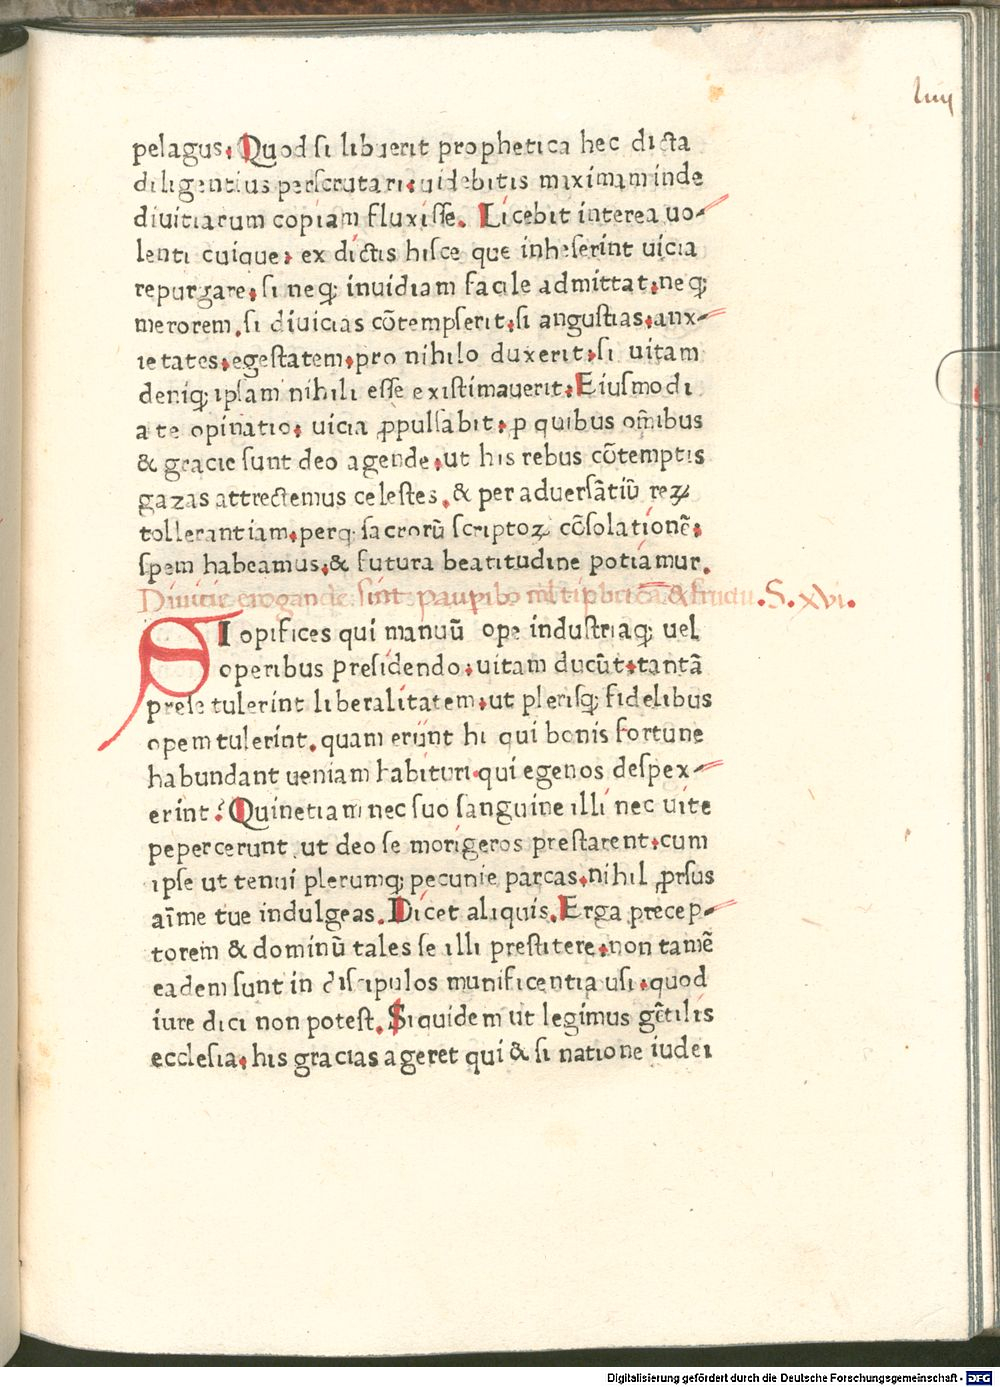 liiij
pelagus. Quod si libuerit prophetica hec dicta
diligentius perscrutari. uidebitis maximam inde
diuitiarum copiam fluxisse. Licebit interea uo-
lenti cuique. ex dictis hisce que inheserint uicia
repurgare. si neq; inuidiam facile admittat. neq;
merorem. si diuicias cõtempserit. si angustias. anx-
ietates. egestatem. pro nihilo duxerit. si uitam
deniq; ipsam nihili esse existimauerit. Eiusmodi
a te opinatio. uicia ꝓpulsabit. p quibus om̃ibus
& gracie sunt deo agende. ut his rebus cõtemptis
gazas attrectemus celestes. & per aduersãtiũ reꝝ
tollerantiam. perq; sacrorũ scriptoꝝ cõsolationẽ.
spem habeamus. & futura beatitudine potiamur.
Diuicie erogande sunt pauꝑibo & fructu. S. xvi.
SI opifices qui manuũ ope industriaq; uel
operibus presidendo. uitam ducũt. tantã
prese tulerint liberalitatem. ut plerisq; fidelibus
opem tulerint. quam erunt hi qui bonis fortune
habundant ueniam habituri. qui egenos despex-
erint? Quinetiam nec suo sanguine illi nec uite
pepercerunt. ut deo se morigeros prestarent. cum
ipse ut tenui plerumq; pecunie parcas. nihil ꝓrsus
aĩme tue indulgeas. Dicet aliquis. Erga precep-
torem & dominũ tales se illi prestitere. non tamẽ
eadem sunt in discipulos munificentia usi. quod
iure dici non potest. Siquidem ut legimus gẽtilis
ecclesia. his gracias ageret qui & si natione iudei
Digitalisierung gefördert durch die Deutsche Forschungsgemeinschaft - DFG